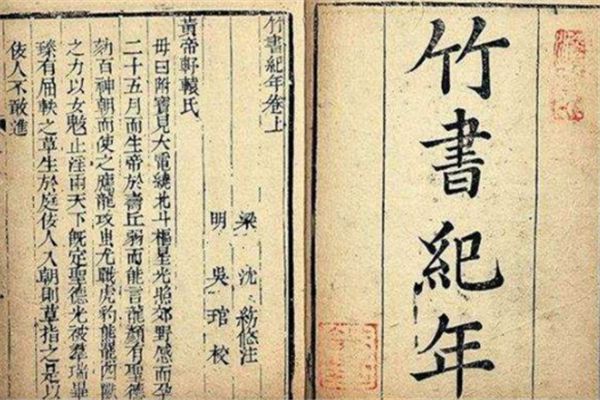 竹書紀年
竹書紀年卷上
梁 沈約 注
明 吳琯 校
黃帝軒轅氏
母曰附寶見大電繞北斗樞星光照郊野感而孕
二十五月而生帝於壽丘弱而能言龍顏有聖德
劾百神朝而使之應龍攻蚩尤戰虎豹熊羆四獸
之力以女魃止淫雨天下既定聖德光被羣瑞畢
臻有屈軼之草生於庭佞人入朝則草指之是以
佞人不敢進